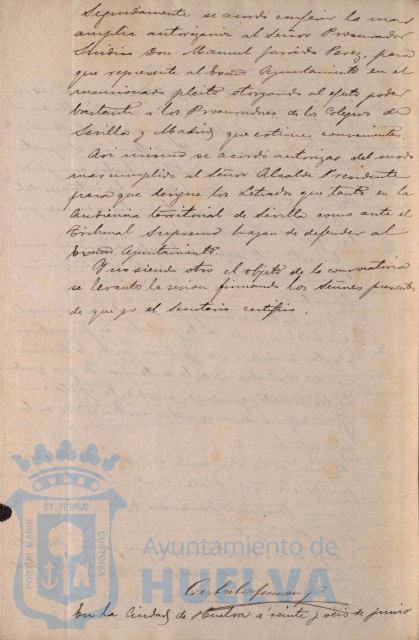 Seguidamente se acordó conferir la mas
amplia autorizacion al Señor Procurador
Sindico Don Manuel Garrido Perez, para
que represente al Excmo Ayuntamiento en el
mencionado pleito otorgando al efecto poder
bastante á los Procuradores de los Colegios de
Sevilla y Madrid que estime conveniente.
Asi mismo se acordó autorizar del modo
mas cumplido al Señor Alcalde Presidente
para que designe los Letrados que tanto en la
Audiencia territorial de Sevilla como ante el
Tribunal Supremo hayan de defender al
Excmo Ayuntamiento.
Y no siendo otro el objeto de la convocatoria
se levantó la sesion firmando los Señores presentes
de que yo el Secretario certifico.
ET TERRÆ
PORTUS MARIS
CUSTODIA
Ayuntamiento de
HUELVA
En la Ciudad de Huelva á veinte y seis de Junio